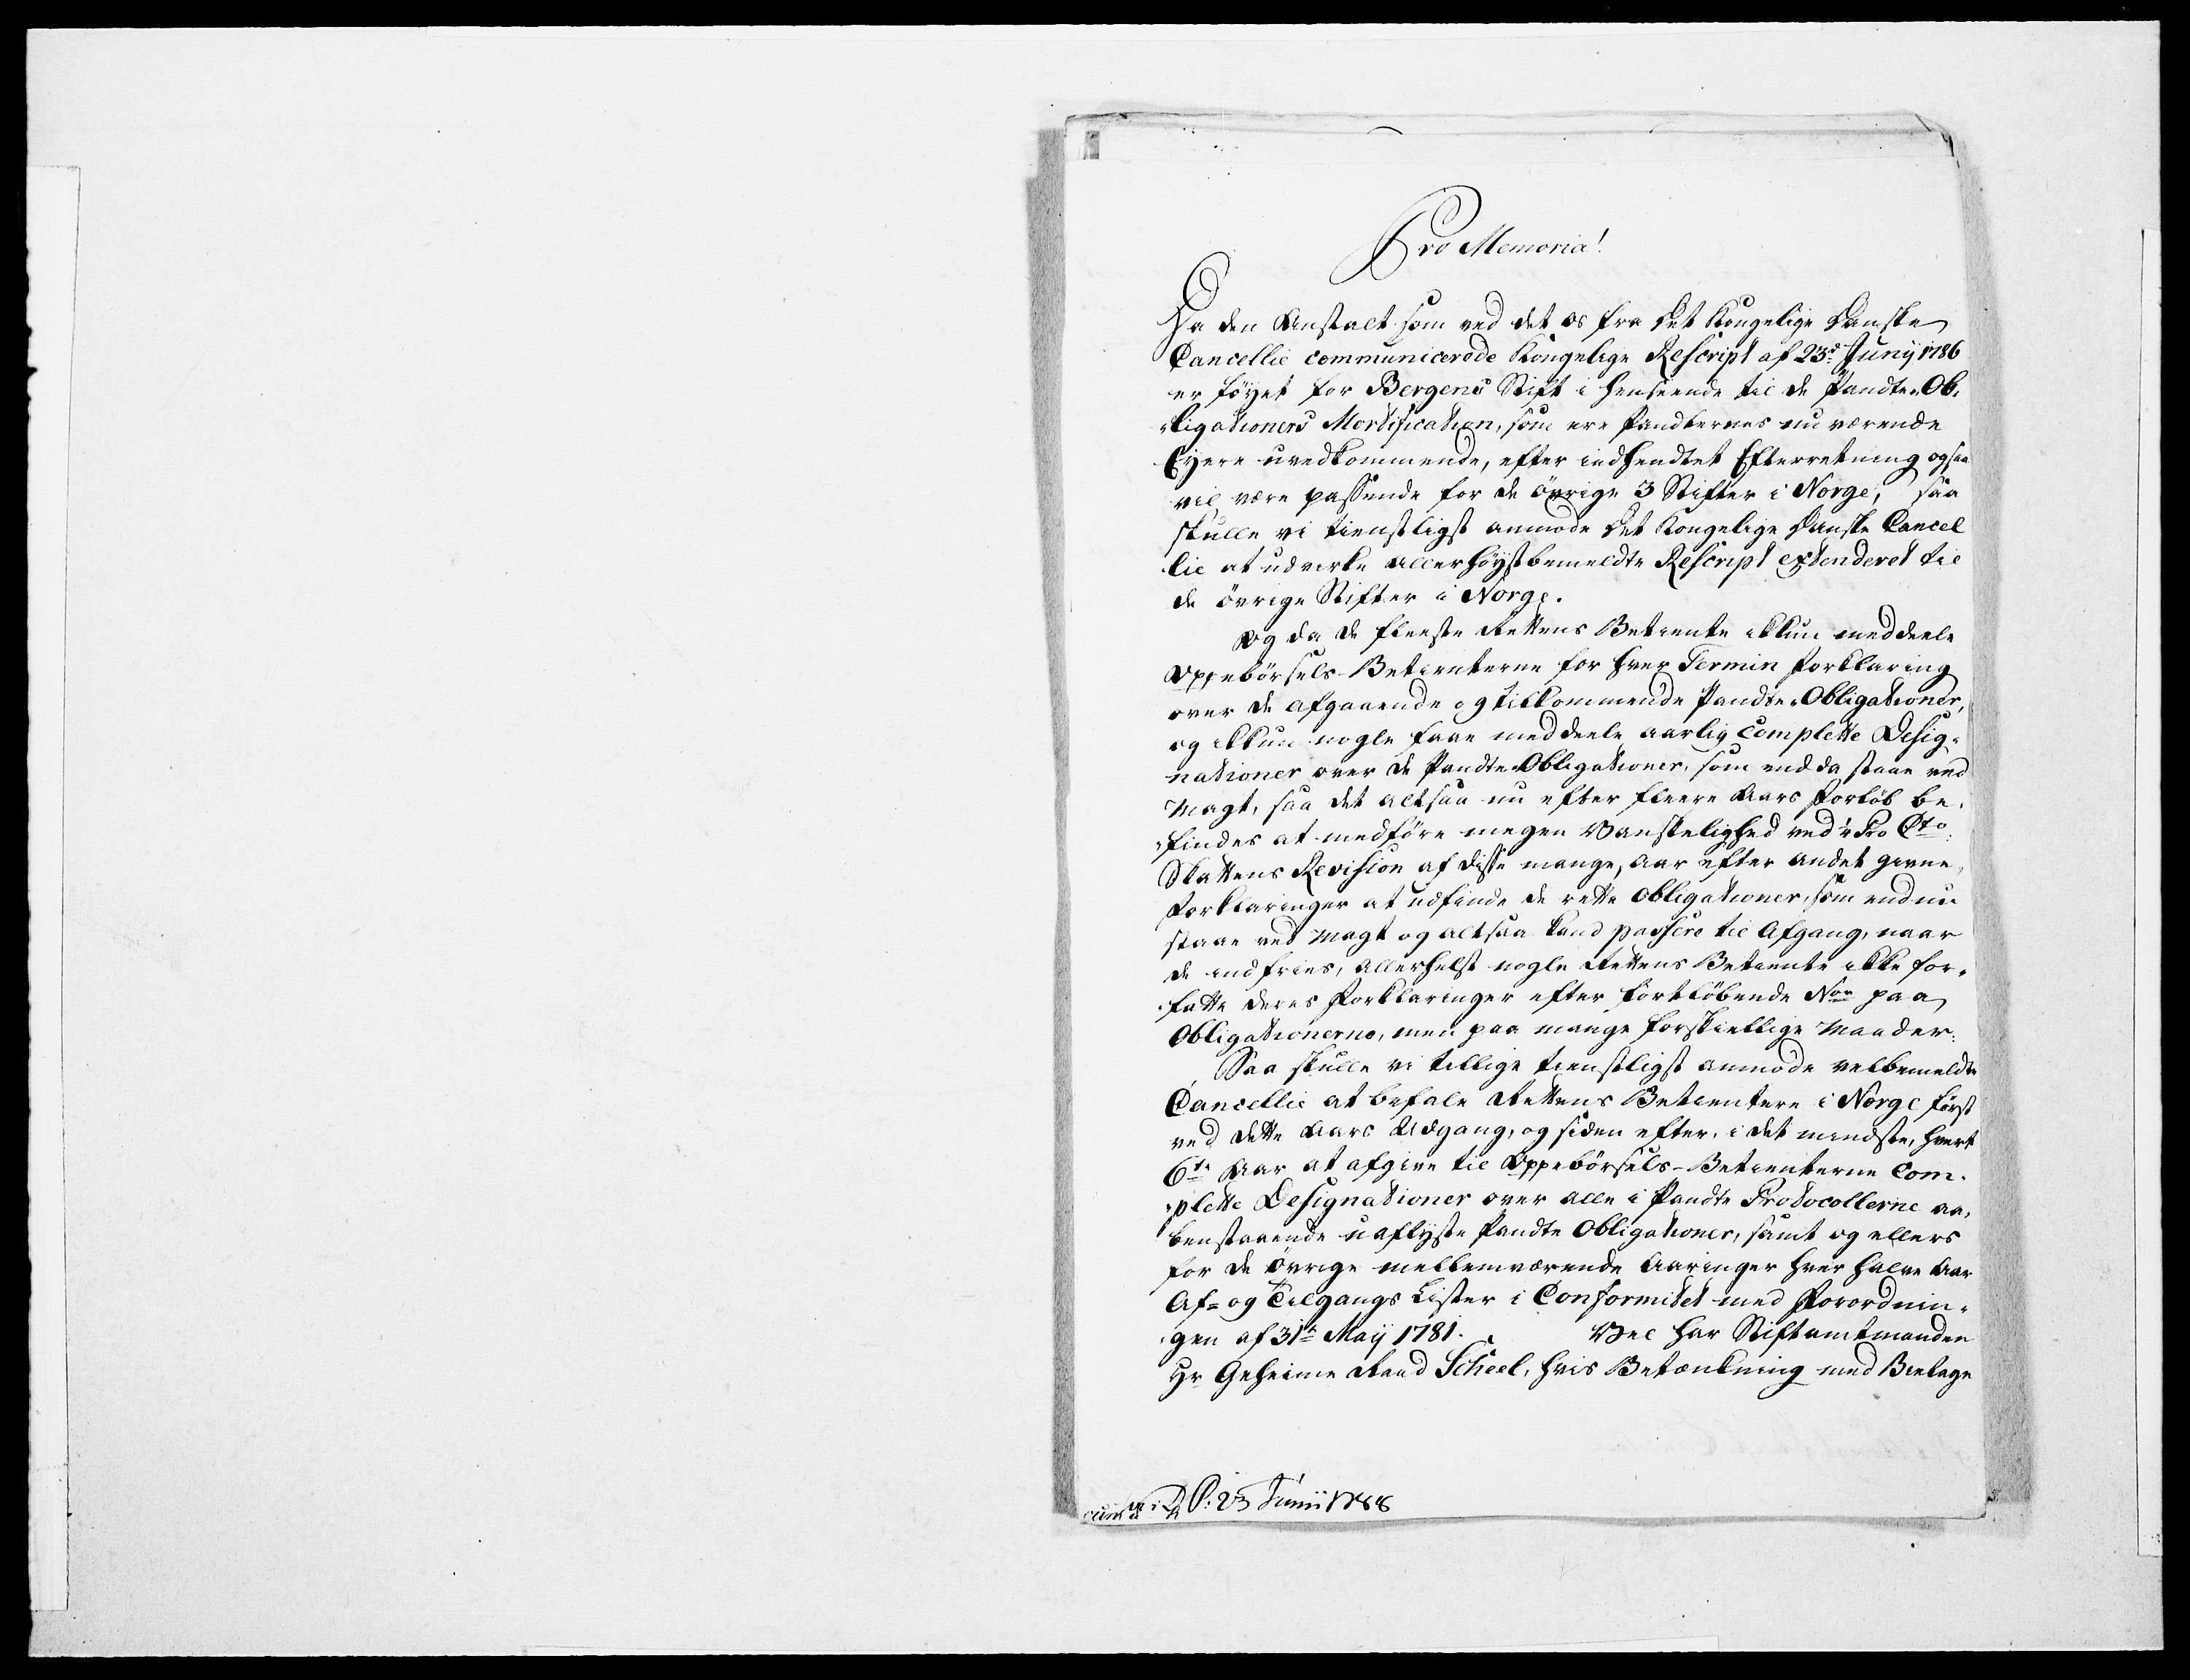 Pro Memoria!
Da den Anstalt som ved det os fra det Kongelige Danske
Cancellie communicerede Kongelige Rescript af 23d Junij 1786
er föyet for Bergens Stift i henseende til de Pandte-Ob-
ligationers Mortification, som ere Pandternes nu værende
Eyere uvedkommende, efter indhendtet Efterretning ogsaa
vil være passende for de övrige 3 Stifter i Norge; saa
skulle vi tienstligst anmode det Kongelige Danske Cancel
lie at udvirke allerhöystbemeldte Rescript extenderet til
de övrige Stifter i Norge.
Og da de fleeste Rettens Betiente ikkun meddeele
Oppebörsels-Betienterne for hver Termin Forklaring
over de afgaaende og tilkommende Pandte-Obligationer,
og ikkun nogle faae meddeele aarlig complette Desig-
nationer over de Pandte-Obligationer, som endda staae ved
Magt, saa det altsaa nu efter fleere Aars Forlöb be-
findes at medföre megen Vanskelighed ved ¼ Pro Cto
Skattens Revision af disse mange, Aar efter andet givne
Forklaringer at udfinde de rette Obligationer, som endnu
staae ved Magt og altsaa kand passere til Afgang, naar
de indfries, allerhelst nogle Rettens Betiente ikke for-
fatte deres Forklaringer efter fortlöbende Noe paa
Obligationerne, men paa mange forskiellige Maader:
Saa skulle vi tillige tienstligst anmode velbemeldte
Cancellie at befale Rettens Betientere i Norge först
ved dette Aars Udgang, og siden efter, i det mindste, hvert
6te Aar at afgive til Oppebörsels-Betienterne com-
plette Designationer over alle i Pandte Protocollerne aa-
benstaaende uaflyste Pandte Obligationer, samt og ellers
for de övrige mellemværende Aaringer hver halve Aar
Af- og Tilgangs Lister i Conformitet med Forordnin-
gen af 31te Maij 1781. Vel har Stiftamtmanden
Hr Geheime Raad Scheel, hvis Betænkning med Bielage
P: 23 Junii 1788